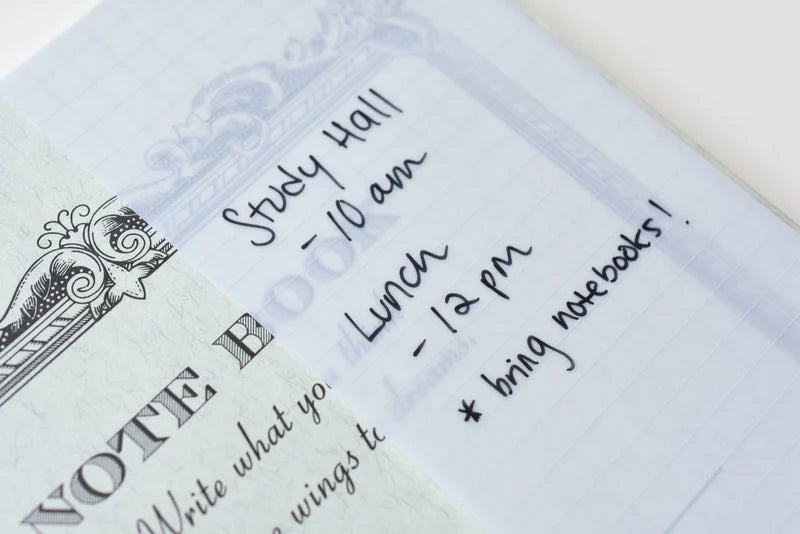 Study Hall
- 10 am
Lunch
- 12 pm
* bring notebooks!
NOTE BOOK
Write what you
wings to
dreams.